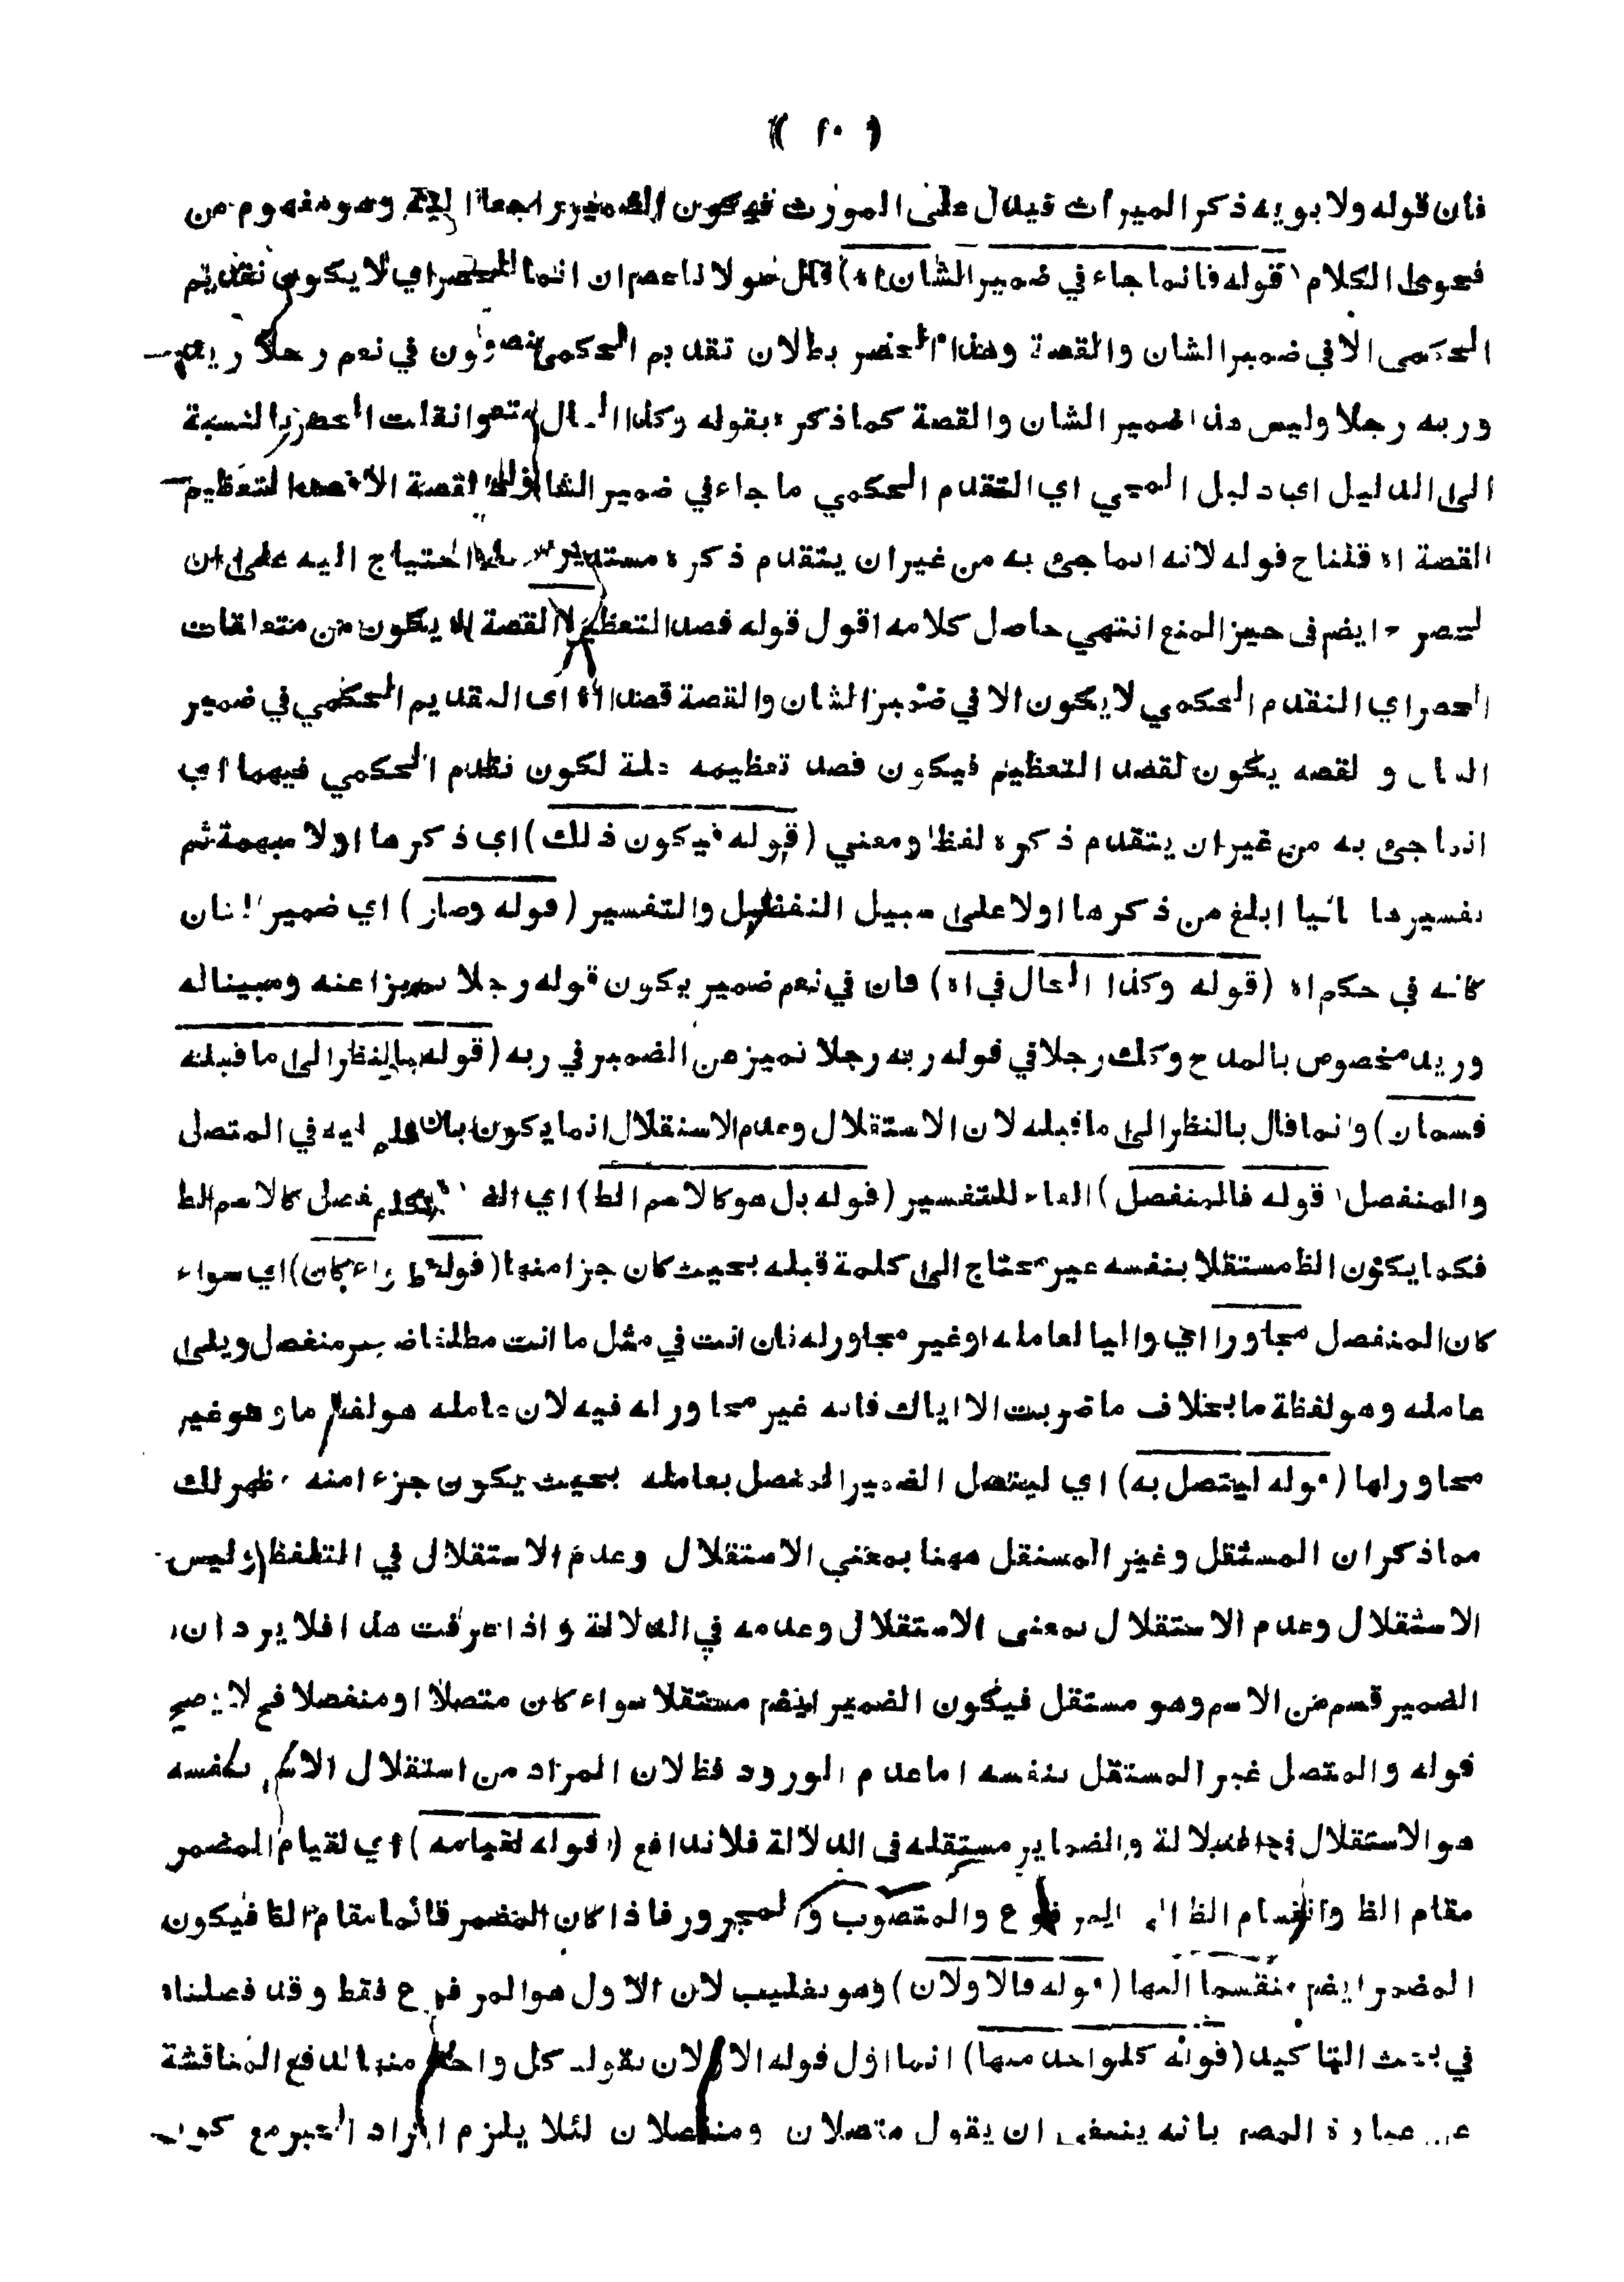 ( ٢٠ )
فان قوله ولا بويه ذكر الميراث فيدل على المورث فيكون الضمير راجعا اليه وهو مفهوم من
فحوى الكلام (قوله فانما جاء في ضمير الشان اه) قال مولانا عصام ان انما للحصر اي لا يكون تقديم
الحكمى الا في ضمير الشان والقصة وهذا الحصر بطلان تقديم الحكمى في نعم رجلا زيد
وربه رجلا وليس هذا ضمير الشان والقصة كما ذكره بقوله وكذا الحال انقلت الحصر بالنسبة
الى الدليل اي دليل المجي اي التقدم الحكمي ما جاء في ضمير الشان والقصة الا قصدا لتعظيم
القصة اه قلنا ح قوله لانه انما جئ به من غير ان يتقدم ذكره مستدرك الاحتياج اليه على ان
الحصر ايضم فى حيز المنع انتهي حاصل كلامه اقول قوله قصد التعظيم القصة اه يكون من متعلقات
الحصر اي التقدم الحكمي لا يكون الا في ضمير الشان والقصة قصدا اه اى التقديم الحكمي في ضمير
الشان والقصه يكون لقصد التعظيم فيكون قصد تعظيمه علة لكون تقدم الحكمي فيهما اي
انما جئ به من غير ان يتقدم ذكره لفظا ومعني (قوله فيكون ذلك) اي ذكرها اولا مبهمة ثم
تفسيرها ثانيا ابلغ من ذكرها اولا على سبيل التفصيل والتفسير (قوله وصار) اي ضمير الشان
كانه في حكم اه (قوله وكذا الحال في اه) فان في نعم ضمير يكون قوله رجلا تمييزا عنه ومبيناله
وزيد مخصوص بالمدح وكذلك رجلا في قوله ربه رجلا تميز عن الضمير في ربه (قوله بالنظر الى ما قبله
قسمان) وانما قال بالنظر الى ما قبله لان الاستقلال وعدم الاستقلال انما يكون بان علم اليه في المتصل
والمنفصل (قوله فالمنفصل) الفاء للتفسير (قوله بل هو كالاسم الظ) اي المنفصل كالاسم الظ
فكما يكون الظ مستقلا بنفسه غير محتاج الى كلمة قبله بحيث كان جزا منها (قوله سواء كان) اي سواء
كان المنفصل مجاورا اي واليا لعامله او غير مجاور له فان انت في مثل ما انت مطلقا ضمير منفصل ويلى
عامله وهو لفظة ما بخلاف ما ضربت الا اياك فانه غير مجاور له فيه لان عامله هو لفظ ما وهو غير
مجاور لها (قوله ليتصل به) اي ليتصل الضمير المتصل بعامله بحيث يكون جزء امنه فظهر لك
مما ذكر ان المستقل وغير المستقل ههنا بمعني الاستقلال وعدم الاستقلال في التلفظ وليس
الاستقلال وعدم الاستقلال بمعنى الاستقلال وعدمه في الدلالة واذا عرفت هذا فلا يرد ان
الضمير قسم من الاسم وهو مستقل فيكون الضمير ايضم مستقلا سواء كان متصلا او منفصلا فح لا يصح
قوله والمتصل غير المستقل بنفسه اما عدم الورود فظ لان المراد من استقلال الاسم بنفسه
هو الاستقلال في الدلالة والضماير مستقله فى الدلالة فلا تدافع (قوله لقيامه) اي لقيام المضمر
مقام الظ وانقسام الظ الى المرفوع والمنصوب والمجرور فاذا كان المضمر قائما مقام الظ فيكون
المضمر ايضم منقسما اليها (قوله فالاولان) وهو تغليب لان الاول هو المرفوع فقط وقد فصلناه
في بحث التاكيد (قوله كلواحد منها) انما اول قوله الاولان بقوله كل واحد منها لدفع المناقشة
عن عبارة المصم بانه ينبغي ان يقول متصلان ومنفصلان لئلا يلزم افراد الخبر مع كون